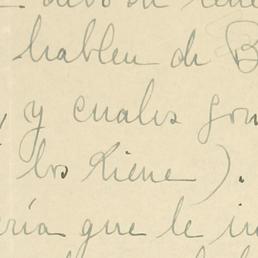 hablen de B
y cuales son
los tiene).
ería que le in